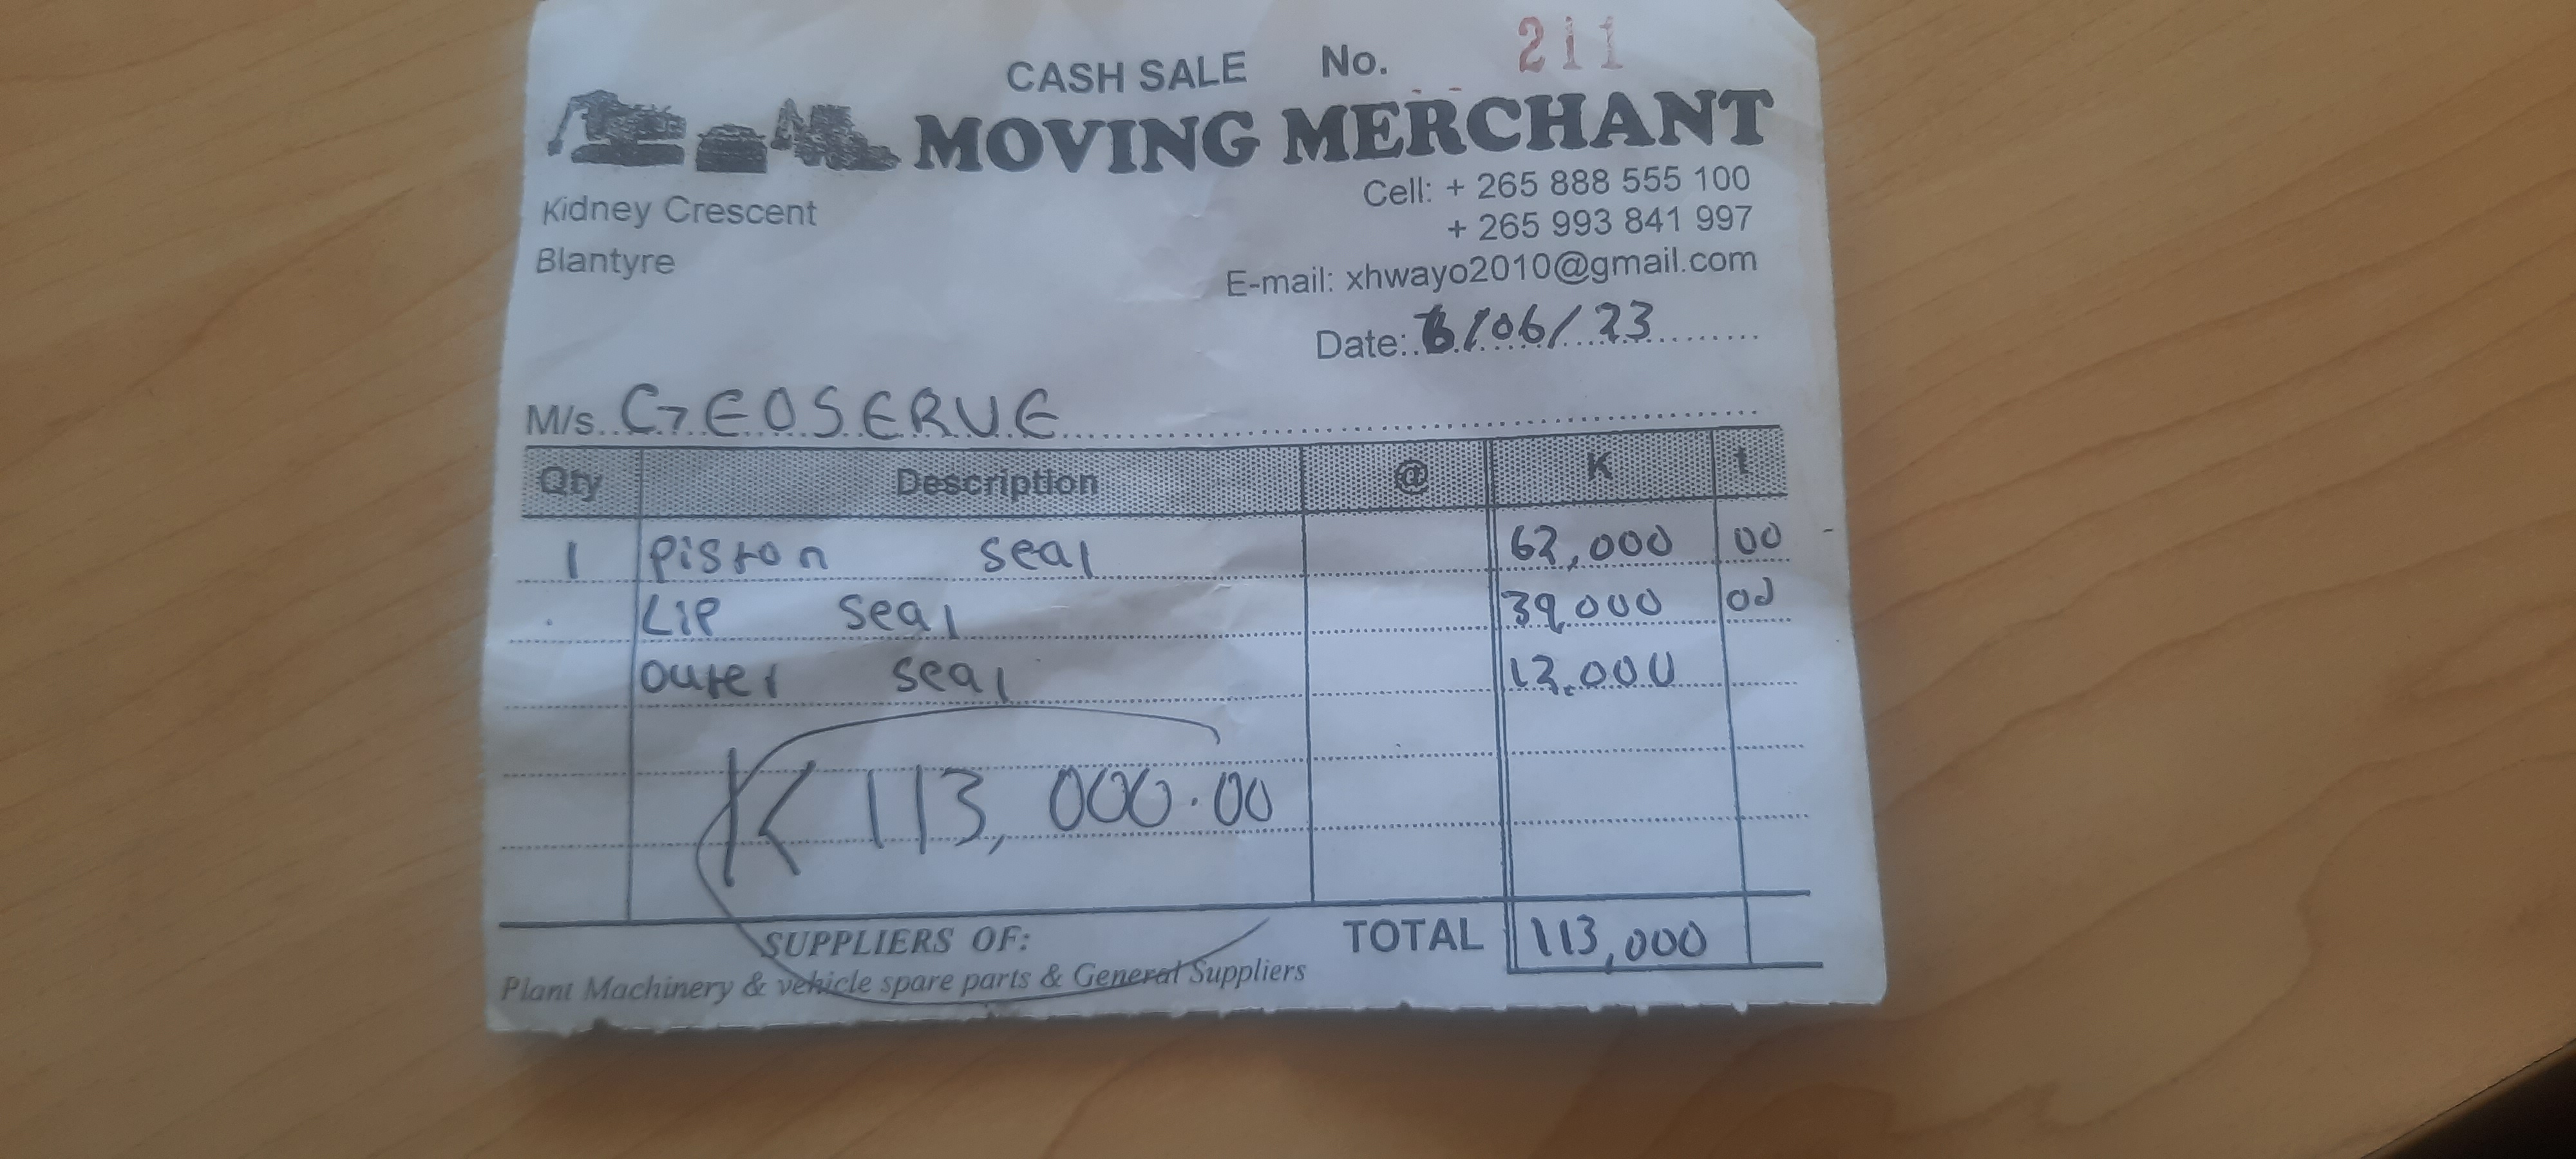 CASH SALE No. 211
MOVING MERCHANT
Kidney Crescent
Blantyre
Cell: + 265 888 555 100
+ 265 993 841 997
E-mail: xhwayo2010@gmail.com
Date: 6/06/23
M/s. GEOSERVE
Qty Description @ K t
1 Piston seal 62,000 00
Lip seal 39,000 00
outer seal 12,000
K113,000.00
SUPPLIERS OF: TOTAL 113,000
Plant Machinery & vehicle spare parts & General Suppliers